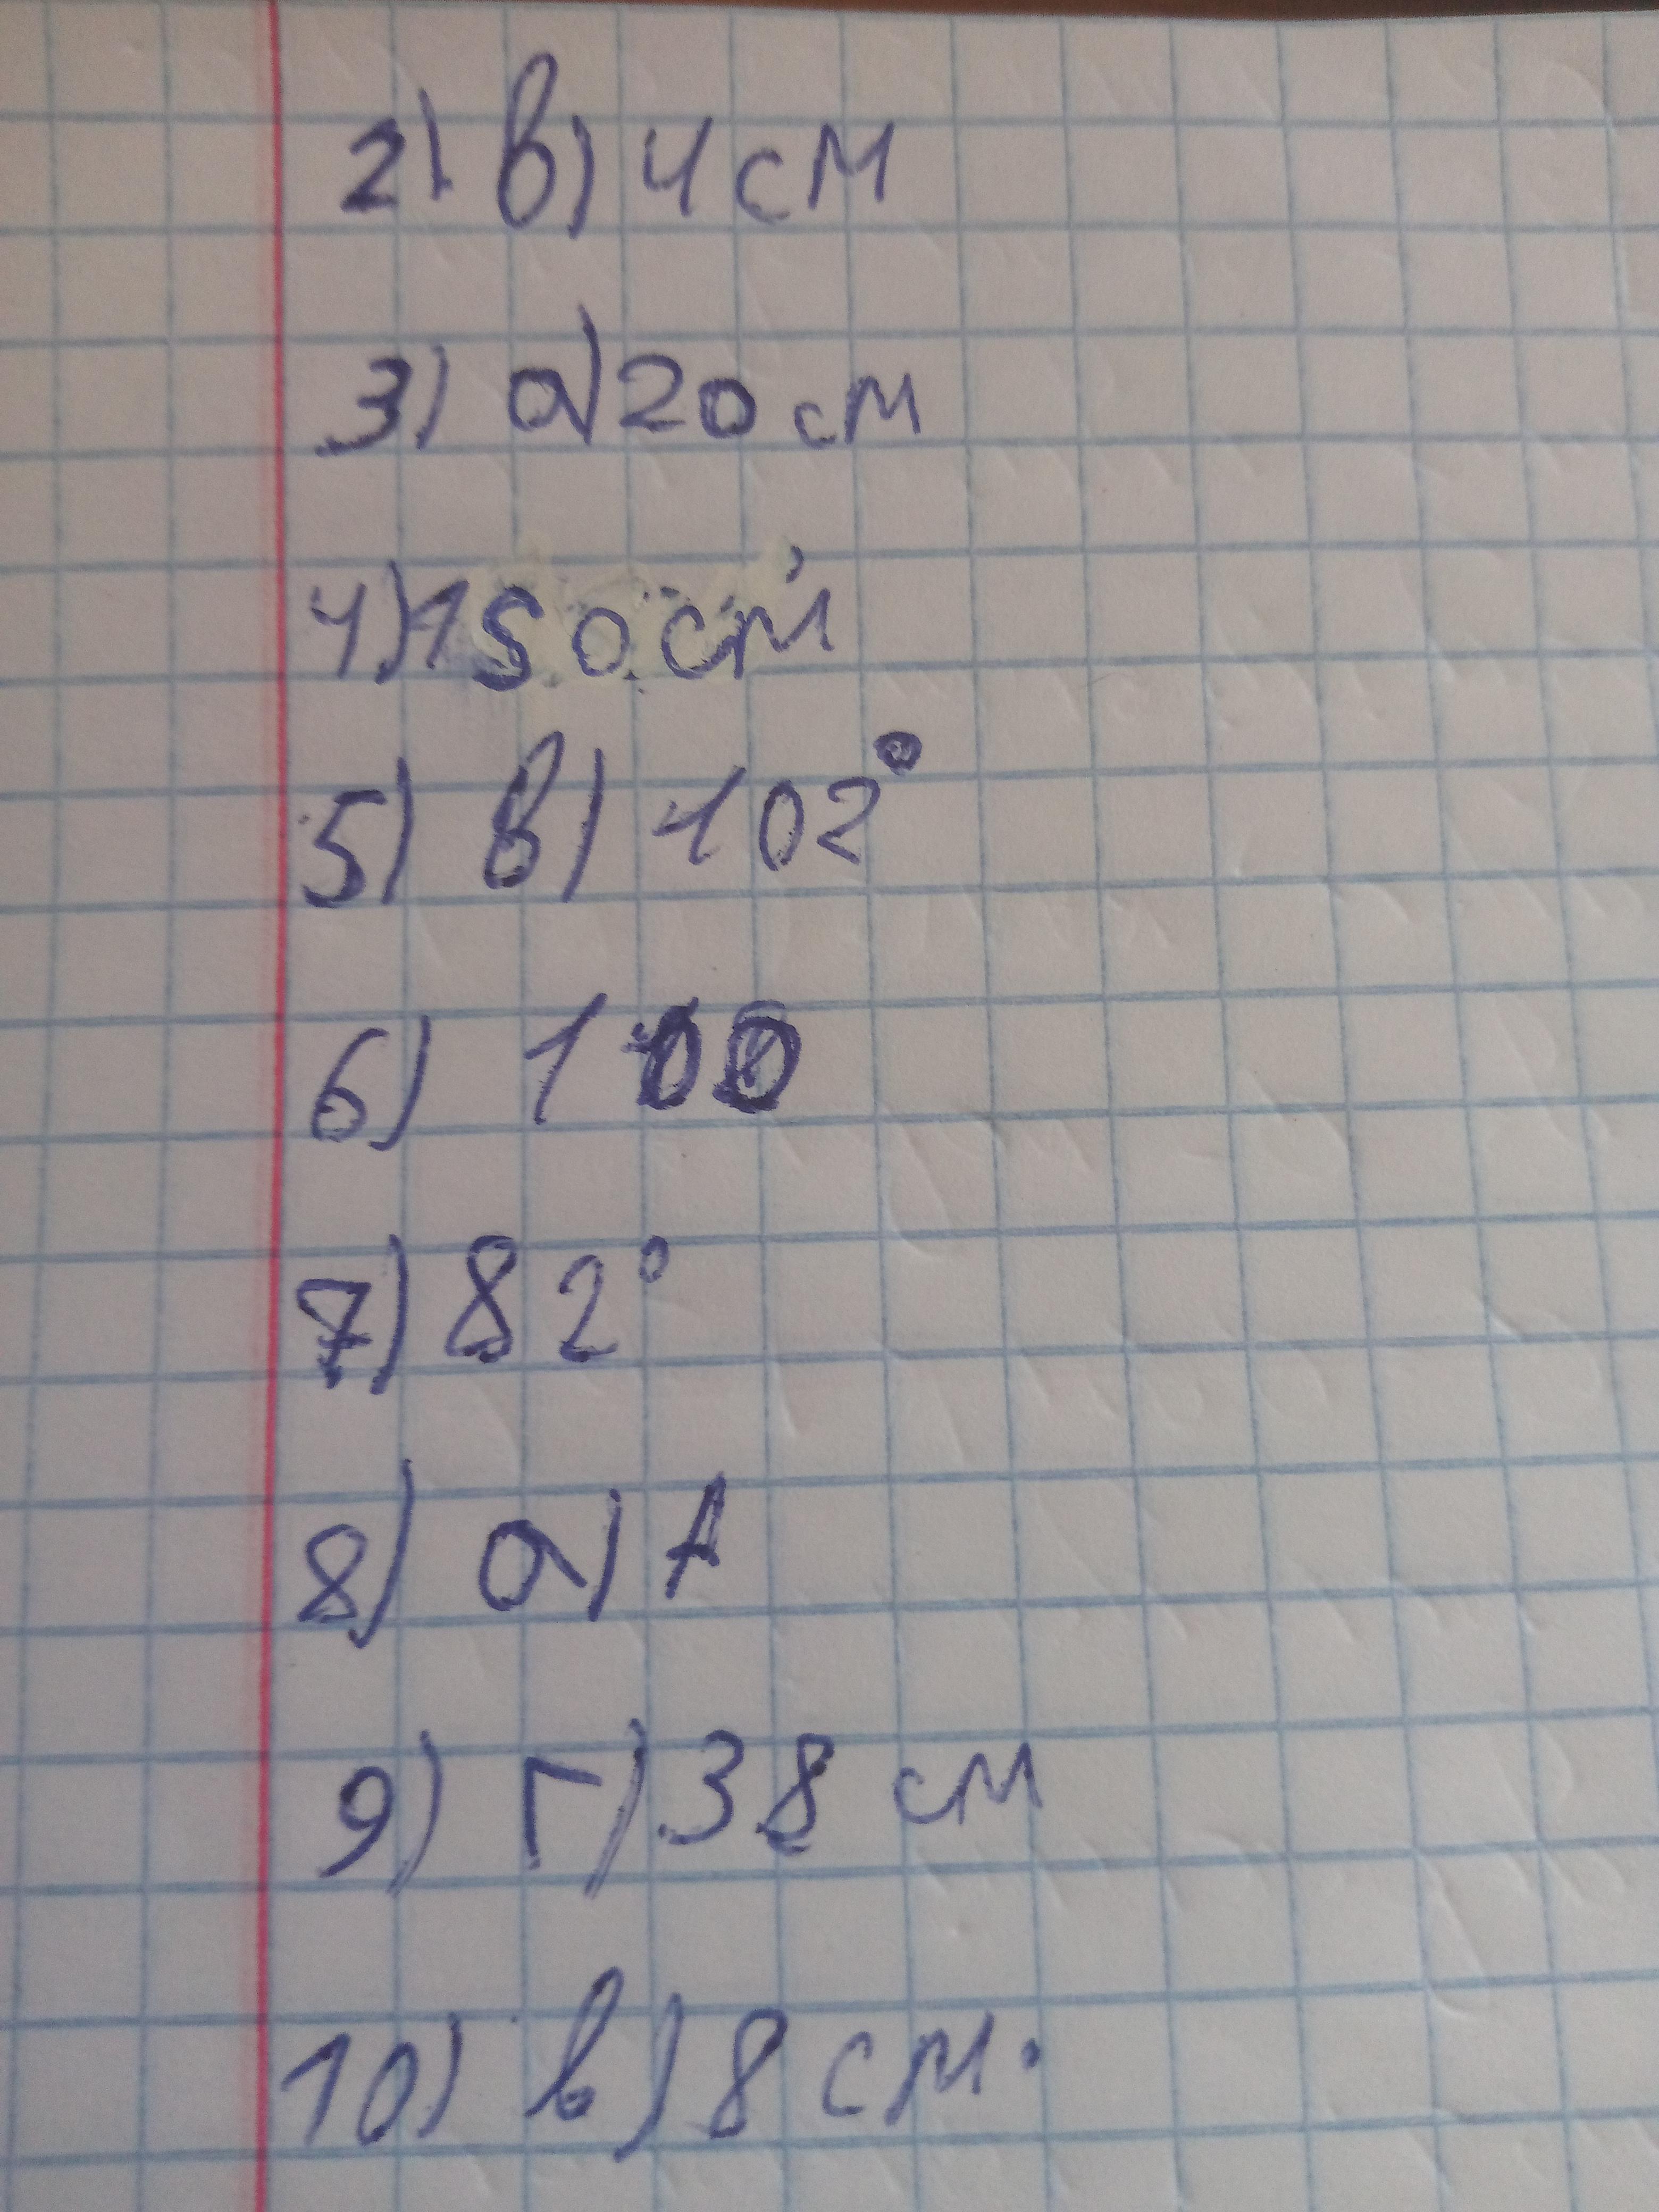 2) в) 4 см
3) а) 20 см
4) 150 см
5) в) 102°
6) 100
7) 82°
8) а) А
9) г) 38 см
10) в) 8 см.